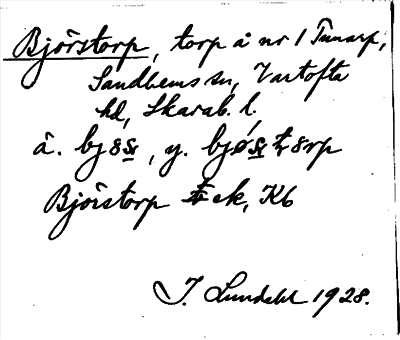 Björstorp, torp å nr 1 Tunarp,
Sandhems sn, Vartofta
hd, Skarab. l,
ä. bj8s̲, y. bjøs̲ t8rp
Björstorp ek, Kb
I. Lundahl 1928.